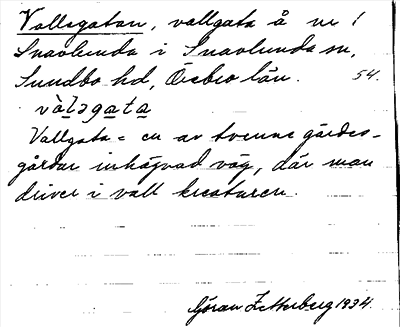 Vallsgatan, vallgata å nr 1
Snavlunda i Snavlunda sn,
Sundbo hd, Örebro län. 54.
vàlsgata
Vallgata = en av tvenne gärdes-
gårdar inhägnad väg, där man
driver i vall kreaturen.
Göran Zetterberg 1934.